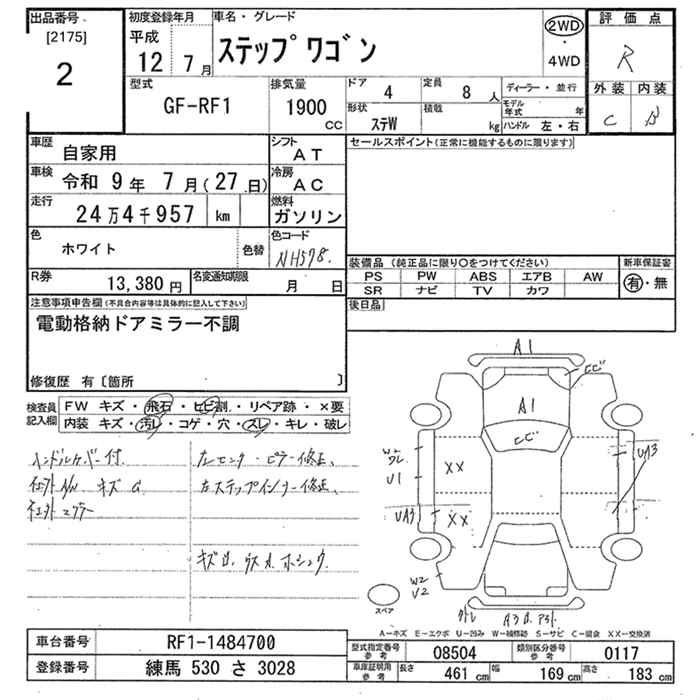 出品番号
[2175]
2
初度登録年月
平成
12 7月
車名・グレード
ステップワゴン
2WD
・
4WD
評価点
R
外装 内装
C B
型式
GF-RF1
排気量
1900
CC
ドア
4
定員
8人
形状
ステW
積載
kg
ディーラー・並行
モデル年式 年
ハンドル 左・右
車歴
自家用
シフト
AT
車検
令和 9年 7月(27.日)
冷房
AC
走行
24万4千957 km
燃料
ガソリン
色
ホワイト
色替
色コード
NH578.
R券
13,380 円
名変通知期限
月 日
セールスポイント(正常に機能するものに限ります)
装備品 (純正品に限り○をつけてください)
新車保証書
PS PW ABS エアB AW
SR ナビ TV カワ
有・無
後日品
注意事項申告欄(不具合内容等は具体的に記入して下さい)
電動格納ドアミラー不調
修復歴 有〔箇所 〕
検査員記入欄
FW キズ・飛石・ヒビ割・リペア跡・×要
内装 キズ・汚レ・コゲ・穴・スレ・キレ・破レ
ハンドルカバー付
社外A/W キズ
社外マフラー
センターピラー修正、
ステップインナー修正、
A1
A1
XX
XX
U1
UA3
UA3
W2
U2
スペア
A－キズ E－エクボ U－凹み W－補修跡 S－サビ C－腐食 XX－交換済
車台番号
RF1-1484700
登録番号
練馬 530 さ 3028
型式指定番号
参考
08504
類別区分番号
参考
0117
車庫証明用
参考
長さ
461 cm
幅
169 cm
高さ
183 cm